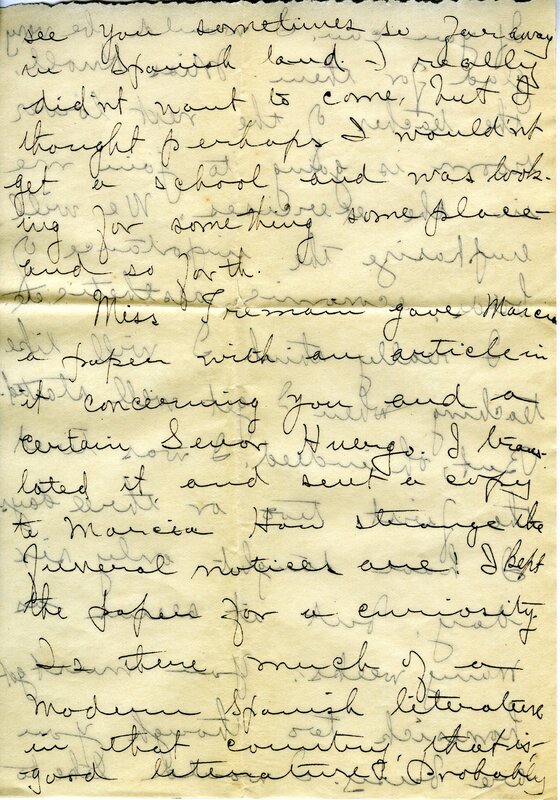 see you sometimes so far away
in Spanish land. I really
didn't want to come, but I
thought perhaps I wouldn't
get a school and was look-
ing for something someplace
and so forth.
Miss Tremain gave Marcia
a paper with an article in
it concerning you and a
certain Senor Huergo. I trans-
lated it and sent a copy
to Marcia. How strange the
funeral notices are! I kept
the paper for a curiosity.
Is there much of a
modern Spanish literature
in that country, that is-
good literature? Probably